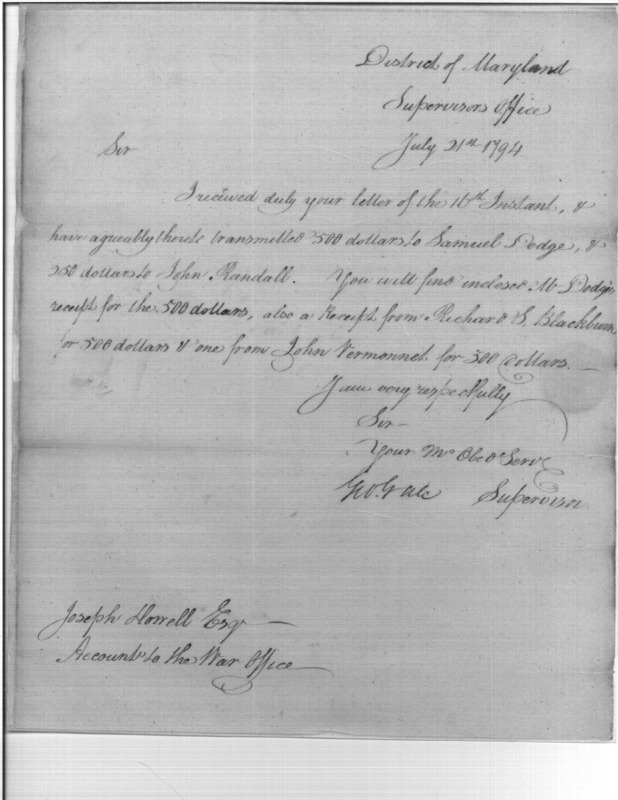 District of Maryland
Supervisors Office
July 21st 1794
Sir
I received duly your letter of the 16th Instant, &
have agreably thereto transmitted 500 dollars to Samuel Dodge, &
250 dollars to John Randall. You will find inclosed Mr Dodge's
receipt for the 500 dollars, also a Receipt from Richard S. Blackburn
for 500 dollars & one from John Vermonnet for 500 dollars.—
I am very respectfully
Sir
Your Mo Obed Serv
Geo. Gale Supervisor
Joseph Howell Esqr
Accountt to the War Office